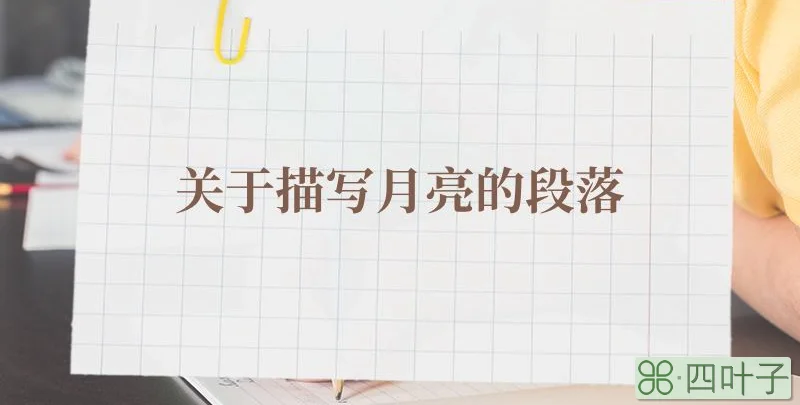 关于描写月亮的段落
四叶子